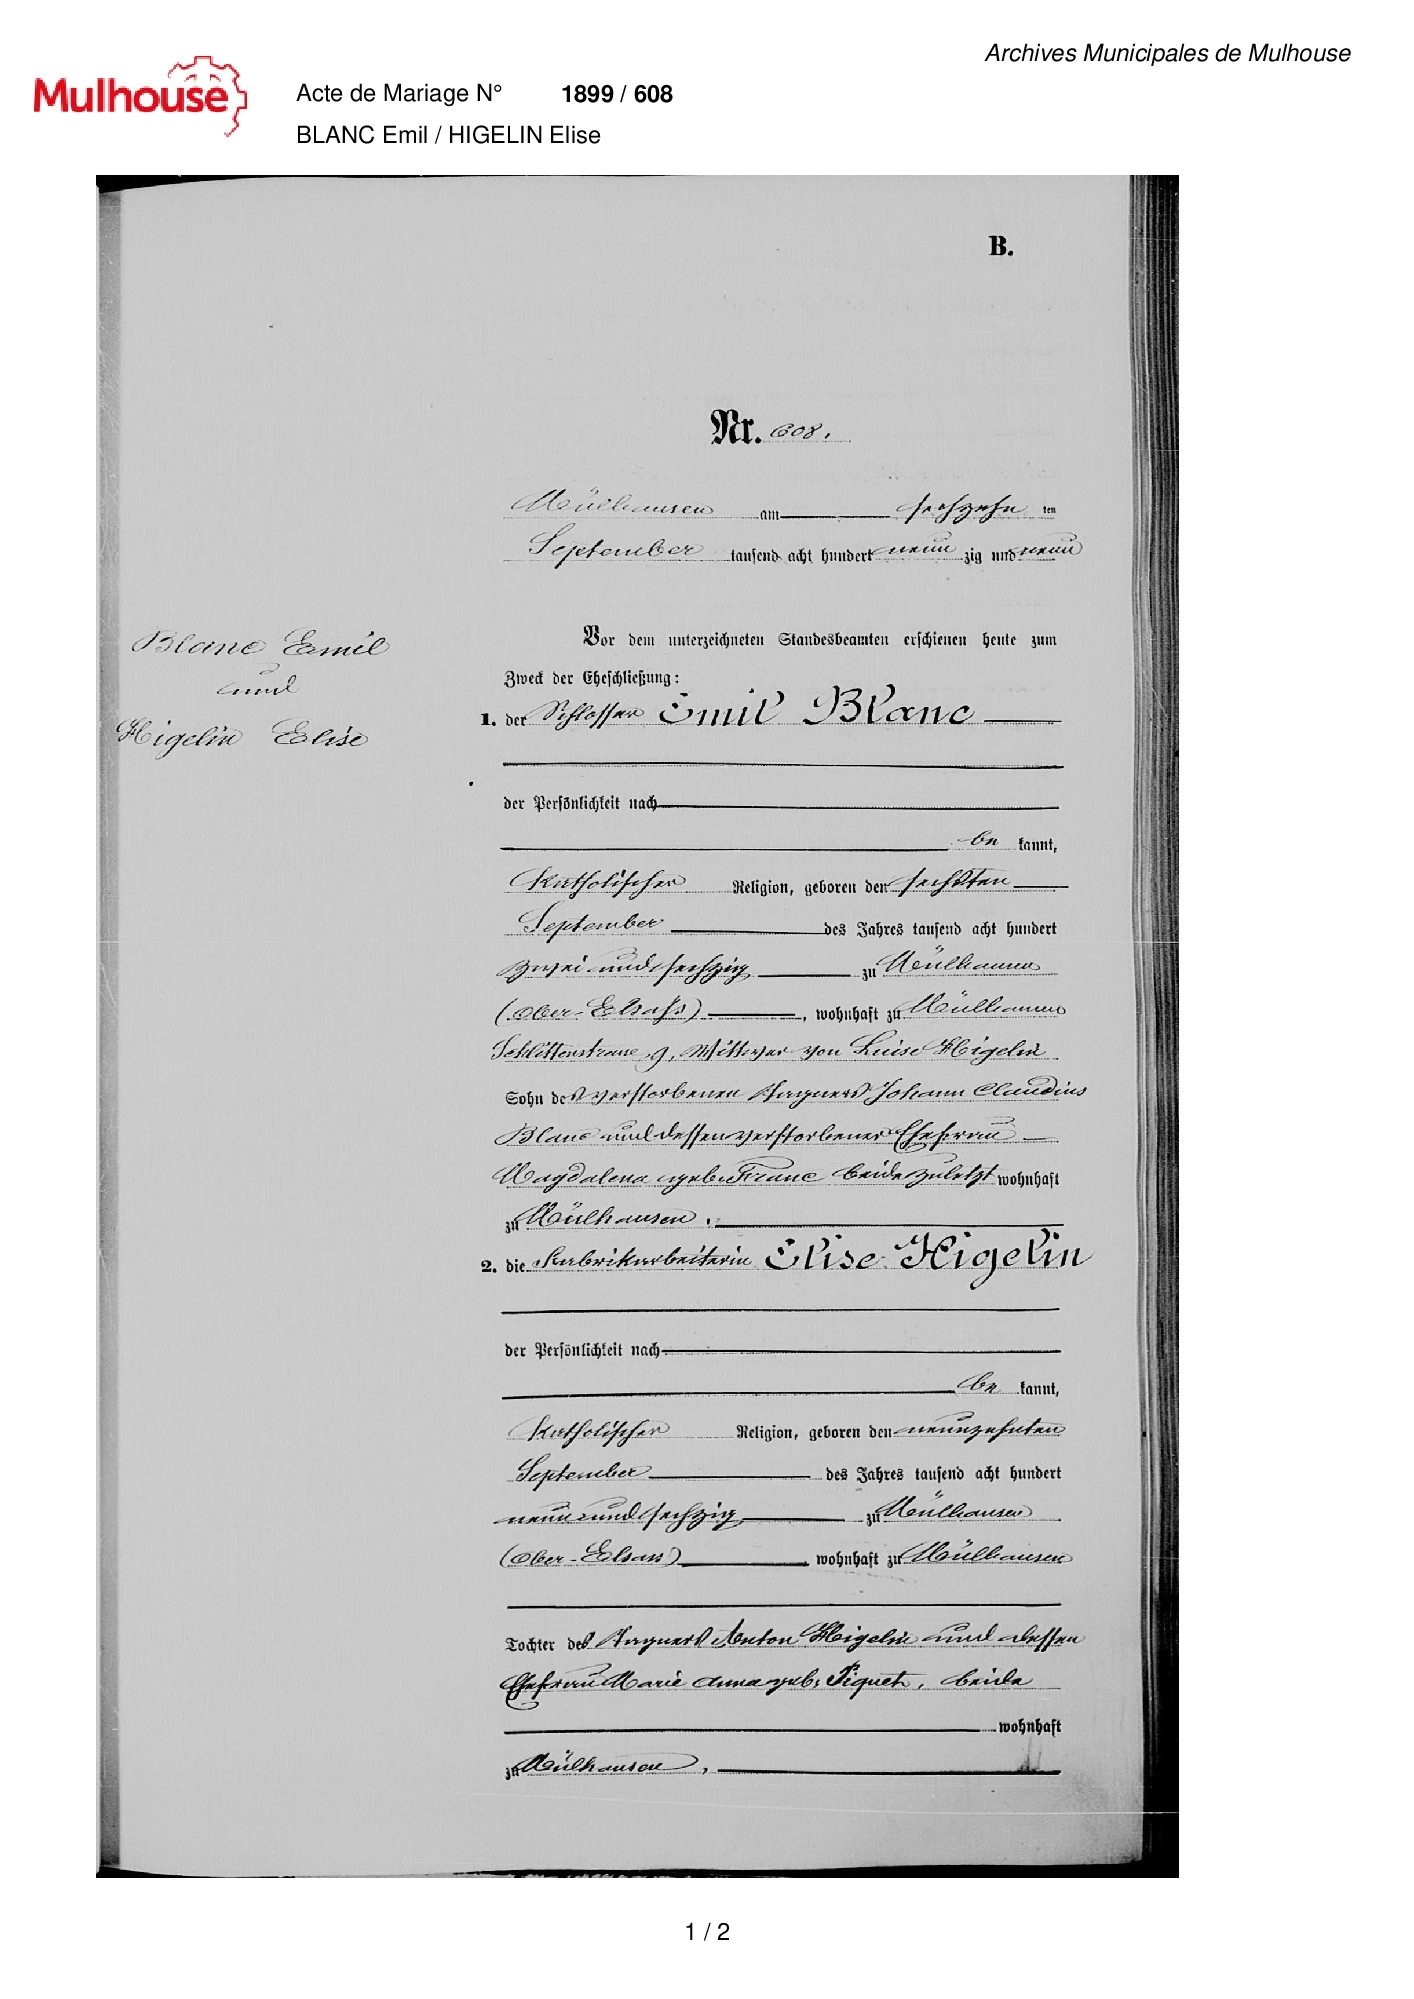 Archives Municipales de Mulhouse
Mulhouse
Acte de Mariage N° 1899 / 608
BLANC Emil / HIGELIN Elise
B.
Nr. 608.
Mülhausen am sechzehn ten
September tausend acht hundert neun zig und neun
Blanc Emil
und
Higelin Elise
Vor dem unterzeichneten Standesbeamten erschienen heute zum
Zweck der Eheschließung:
1. der Schlosser Emil Blanc
der Persönlichkeit nach
be kannt,
katholischer Religion, geboren den sechsten
September des Jahres tausend acht hundert
zwei und sechzig zu Mülhausen
(Ober-Elsaß), wohnhaft zu Mülhausen
9, Wittwer von Luise Higelin
Sohn des verstorbenen Tagners Johann Claudius
Blanc und dessen verstorbener Ehefrau
Magdalena geb. Franc beide zuletzt wohnhaft
zu Mülhausen.
2. die Fabrikarbeiterin Elise Higelin
der Persönlichkeit nach
be kannt,
katholischer Religion, geboren den neunzehnten
September des Jahres tausend acht hundert
neun und sechzig zu Mülhausen
(Ober-Elsass), wohnhaft zu Mülhausen
Tochter des Tagners Anton Higelin und dessen
Ehefrau Marie Anna geb. Piquet, beide
wohnhaft
zu Mülhausen,
1 / 2